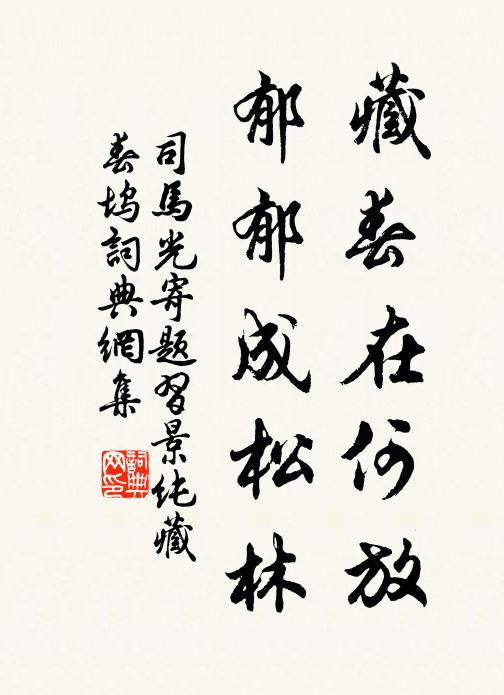 藏春在何放
郁郁成松林
司馬光寄題習景純藏
春塢詞典網集
詞典网印